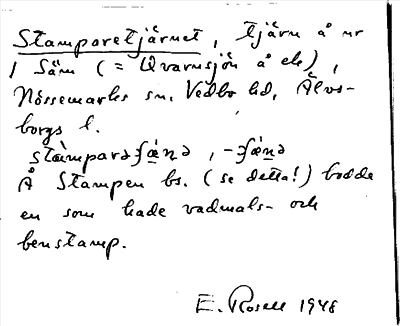 Stamparetjärnet, tjärn å nr
1 Säm (= Qvarnsjön å ek),
Nössemarks sn, Vedbo hd, Älvs-
borgs l.
stàmparəʃæ̀nə, -ʃæ̀nə
Å Stampen bs. (se detta!) bodde
en som hade vadmals- och
benstamp.
E. Rosell 1948